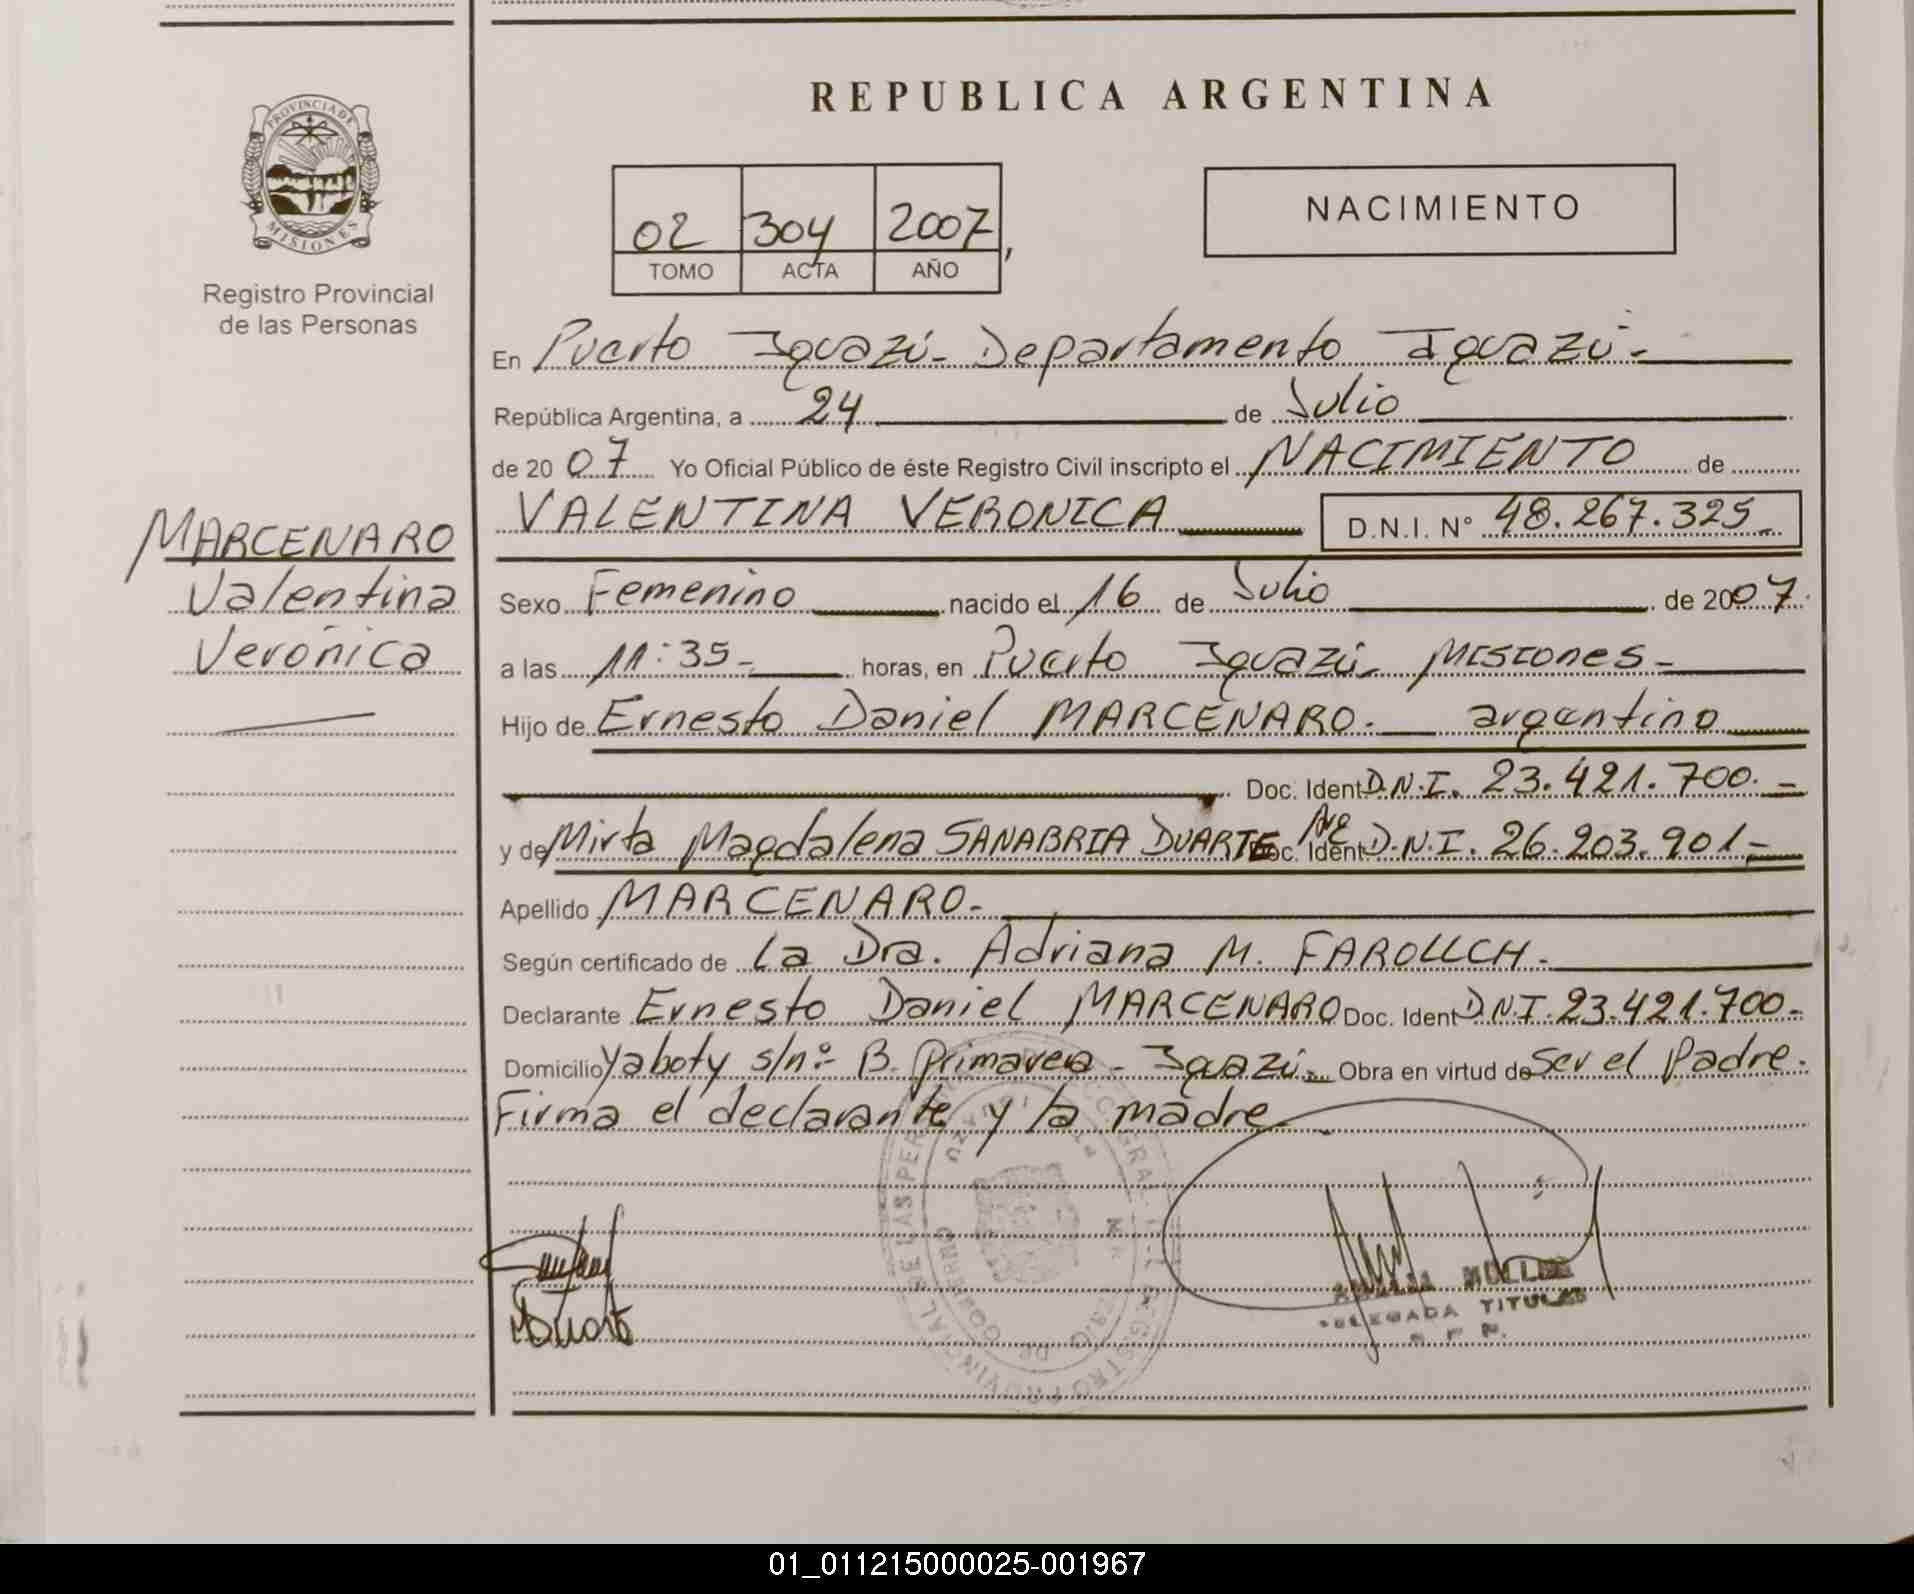 PROVINCIA DE
MISIONES
Registro Provincial
de las Personas
MARCENARO
Valentina
Verónica
REPUBLICA ARGENTINA
02 304 2007
TOMO ACTA AÑO
NACIMIENTO
En Puerto Iguazú - Departamento Iguazú -
República Argentina, a 24 de Julio
de 2007 Yo Oficial Público de éste Registro Civil inscripto el NACIMIENTO de
VALENTINA VERONICA D.N.I. N° 48.267.325 -
Sexo Femenino nacido el 16 de Julio de 2007
a las 11:35 - horas, en Puerto Iguazú - Misiones -
Hijo de Ernesto Daniel MARCENARO. argentino
Doc. Ident D.N.I. 23.421.700. -
y de Mirta Magdalena SANABRIA DUARTE Doc. Ident D.N.I. 26.203.901 -
Apellido MARCENARO -
Según certificado de La Dra. Adriana M.
Declarante Ernesto Daniel MARCENARO Doc. Ident D.N.I. 23.421.700 -
Domicilio Yaboty s/nº - B. Primavera - Iguazú - Obra en virtud de Ser el Padre.
Firma el declarante y la madre
MDuarte
DELEGADA TITULAR
01_011215000025-001967